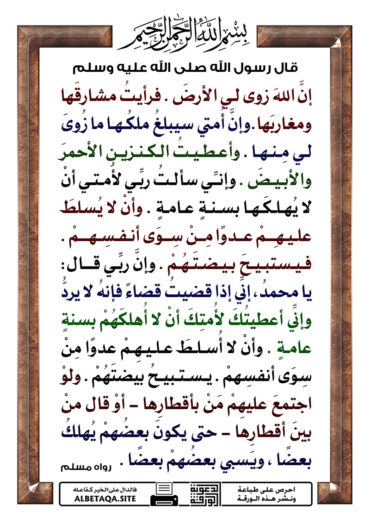 بسم الله الرحمن الرحيم
قال رسول الله صلى الله عليه وسلم
إنَّ اللهَ زوى لي الأرضَ . فرأيتُ مشارقَها
ومغاربَها. وإنَّ أُمتي سيبلغُ ملكُها ما زُوِىَ
لي مِنها . وأُعطيتُ الكنزينِ الأحمرَ
والأبيضَ . وإنِّي سألتُ ربِّي لأُمتي أنْ
لا يُهلكَها بسنةٍ عامةٍ . وأنْ لا يُسلطَ
عليهِمْ عدوًا مِنْ سِوَى أنفسِهِمْ .
فيستبيحَ بيضتَهُمْ . وإنَّ ربِّي قال:
يا محمدُ ، إنِّي إذا قضيتُ قضاءً فإنهُ لا يردُّ
وإنِّي أعطيتُكَ لأُمتِكَ أنْ لا أُهلكَهُمْ بسنةٍ
عامةٍ . وأنْ لا أُسلطَ عليهِمْ عدوًا مِنْ
سِوَى أنفسِهِمْ . يستبيحُ بيضتَهُمْ . ولوْ
اجتمعَ عليهِمْ مَنْ بأقطارِها – أوْ قال منْ
بينَ أقطارِها – حتى يكونَ بعضُهُمْ يُهلكُ
بعضًا ، ويَسبي بعضُهُمْ بعضًا . رواه مسلم
احرص على طباعة ونشر هذه الورقة
الدعوية الورقة
فالدال على الخير كفاعله
ALBETAQA.SITE